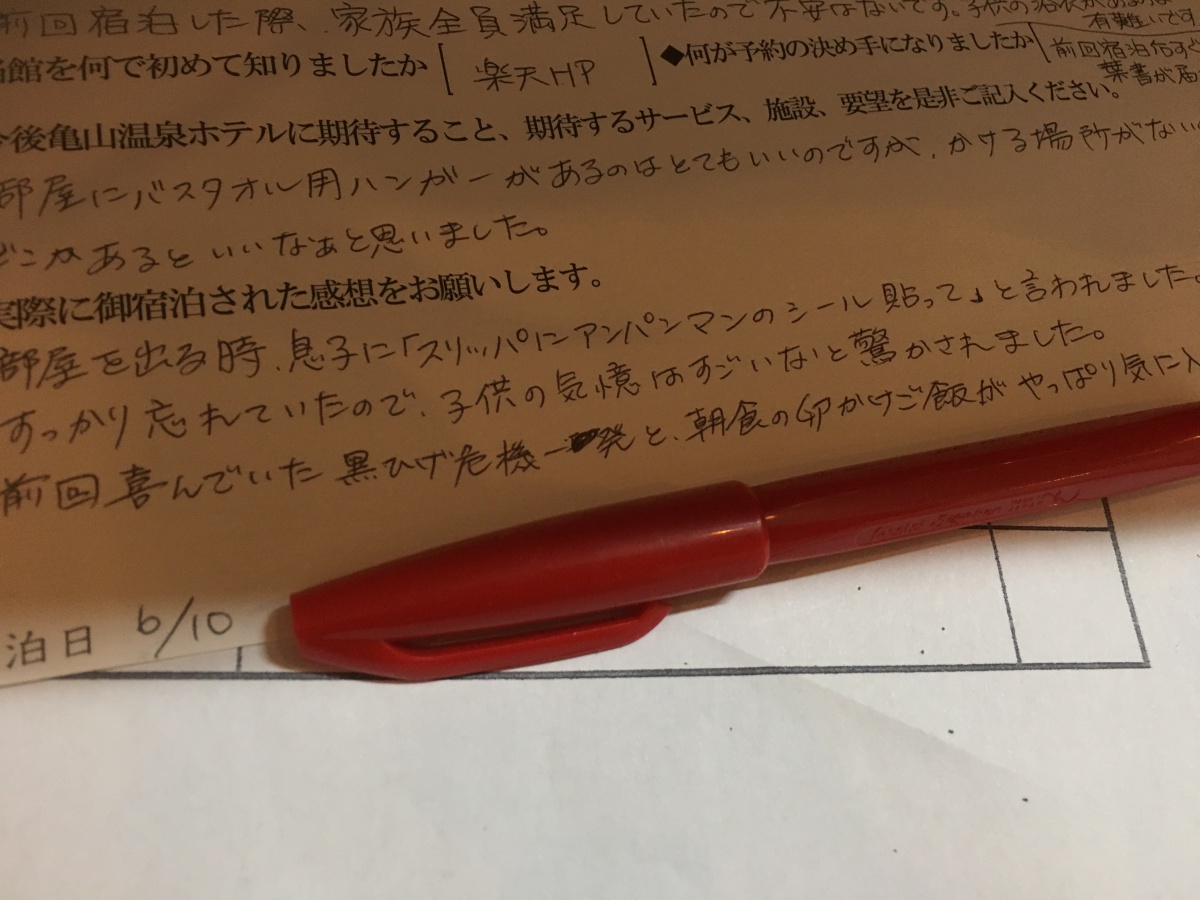 前回宿泊した際、家族全員満足していたので不安はないです。子供の浴衣があるのは
有難いです
館を何で初めて知りましたか [ 楽天HP ] ◆何が予約の決め手になりましたか 前回宿泊后すぐ
葉書が届
今後亀山温泉ホテルに期待すること、期待するサービス、施設、要望を是非ご記入ください。
部屋にバスタオル用ハンガーがあるのはとてもいいのですが、かける場所がない
どこかあるといいなぁと思いました。
実際に御宿泊された感想をお願いします。
部屋を出る時、息子に「スリッパにアンパンマンのシール貼って」と言われました。
すっかり忘れていたので、子供の気憶はすごいなと驚かされました。
前回喜んでいた黒ひげ危機一発と、朝食の卵かけご飯がやっぱり気に入
泊日 6/10